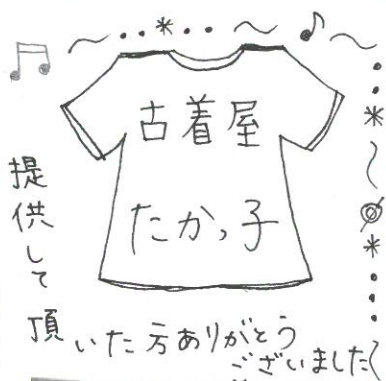 古着屋
たかっ子
提供して
頂いた方ありがとう
ございました